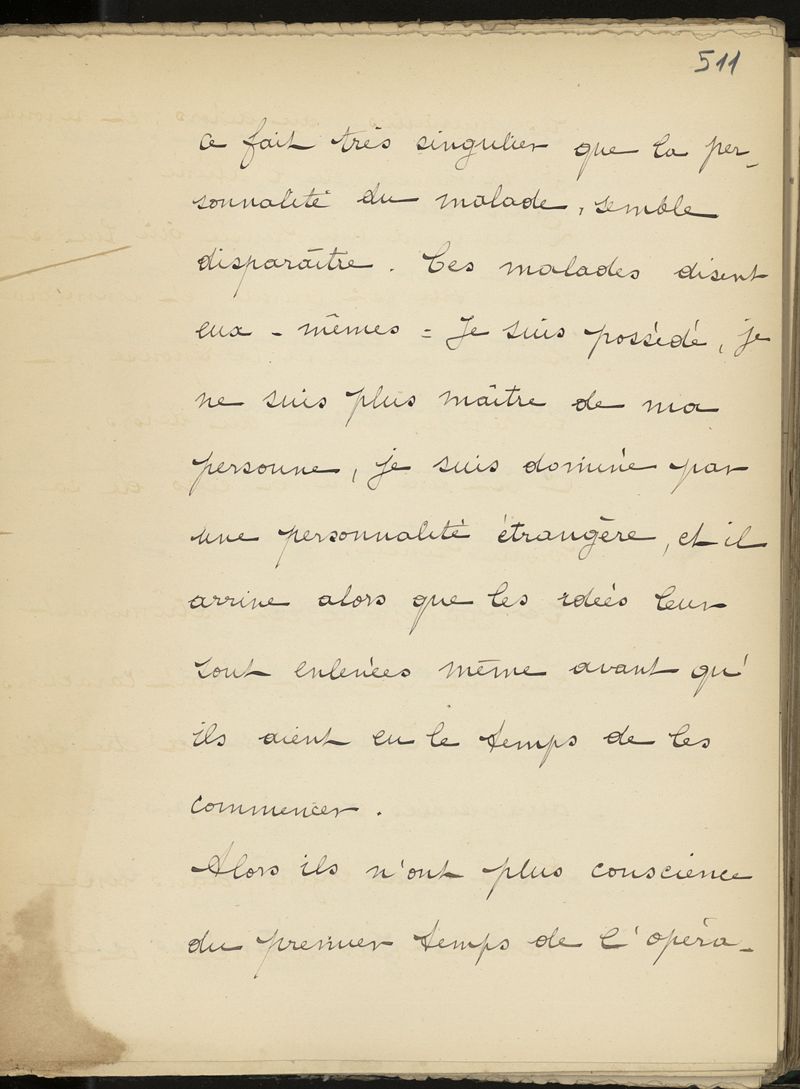 511
ce fait très singulier que la per-
sonnalité du malade, semble
disparaître. Ces malades disent
eux-mêmes = Je suis possédé, je
ne suis plus maître de ma
personne, je suis dominé par
une personnalité étrangère, et il
arrive alors que les idées leur
sont enlevées même avant qu'
ils aient eu le temps de les
commencer.
Alors ils n'ont plus conscience
du premier temps de l'opéra-